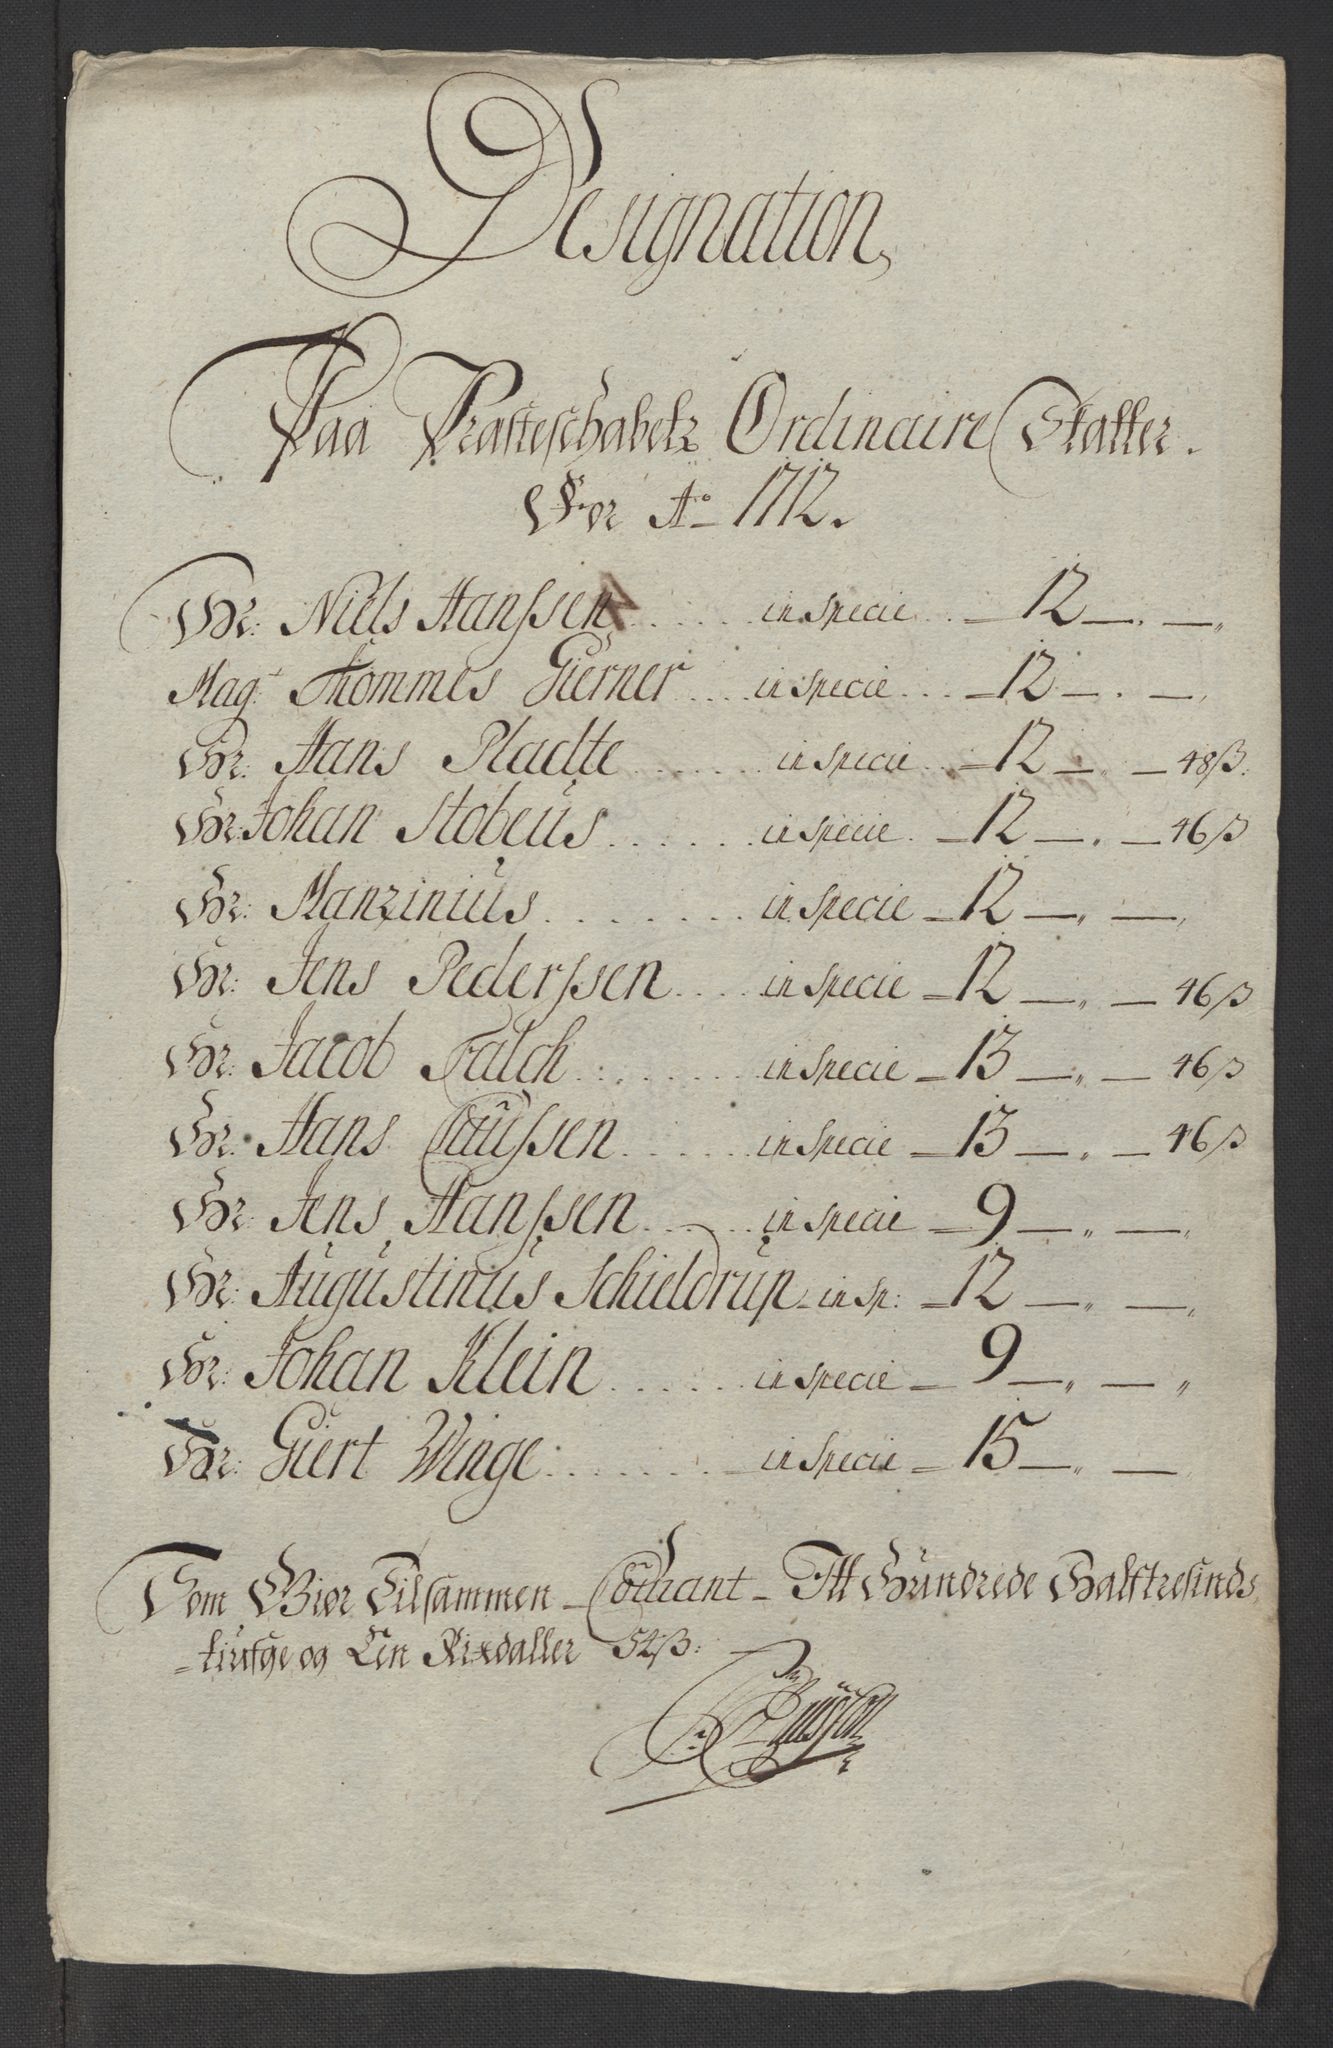 Designation,
Paa Præsteschabetz Ordinaire Skatter.
For Ao 1712.
Hr: Niels Hanssen . . . . . in Specie . . — 12 — . — „
Magr Thommes Gierner . . . in Specie . . . — 12 — . — ,
Hr: Hans Pladte . . . . . . in Specie . . — 12 — „ — 48 ß.
Hr: Johan Stobeus . . . . . . in Specie . — 12 — „ — 46 ß
Hr: Manzinius . . . . . . . in Specie — 12 — „ — ,
Hr: Jens Pederssen . . . . in Specie — 12 — „ — 46 ß
Hr: Jacob Falch . . . . . . . in Specie — 13 — „ — 46 ß
Hr: Hans Claussen . . . . . . in Specie — 13 — „ — 46 ß
Hr: Jens Hanssen . . . . . in Specie — 9 — „ — „
Hr: Augustinus Schieldrup — in Sp: — 12 — „ — „
Hr: Johan Klein . . . . . . in Specie — 9 — „ — „
Hr: Giert Winge : . . . . . — in Specie — 15 — „ —
Som Giør Tilsammen — Courant — Itt Hundrede Halftresinds
= tiufge og Een Rixdaller 54 ß: